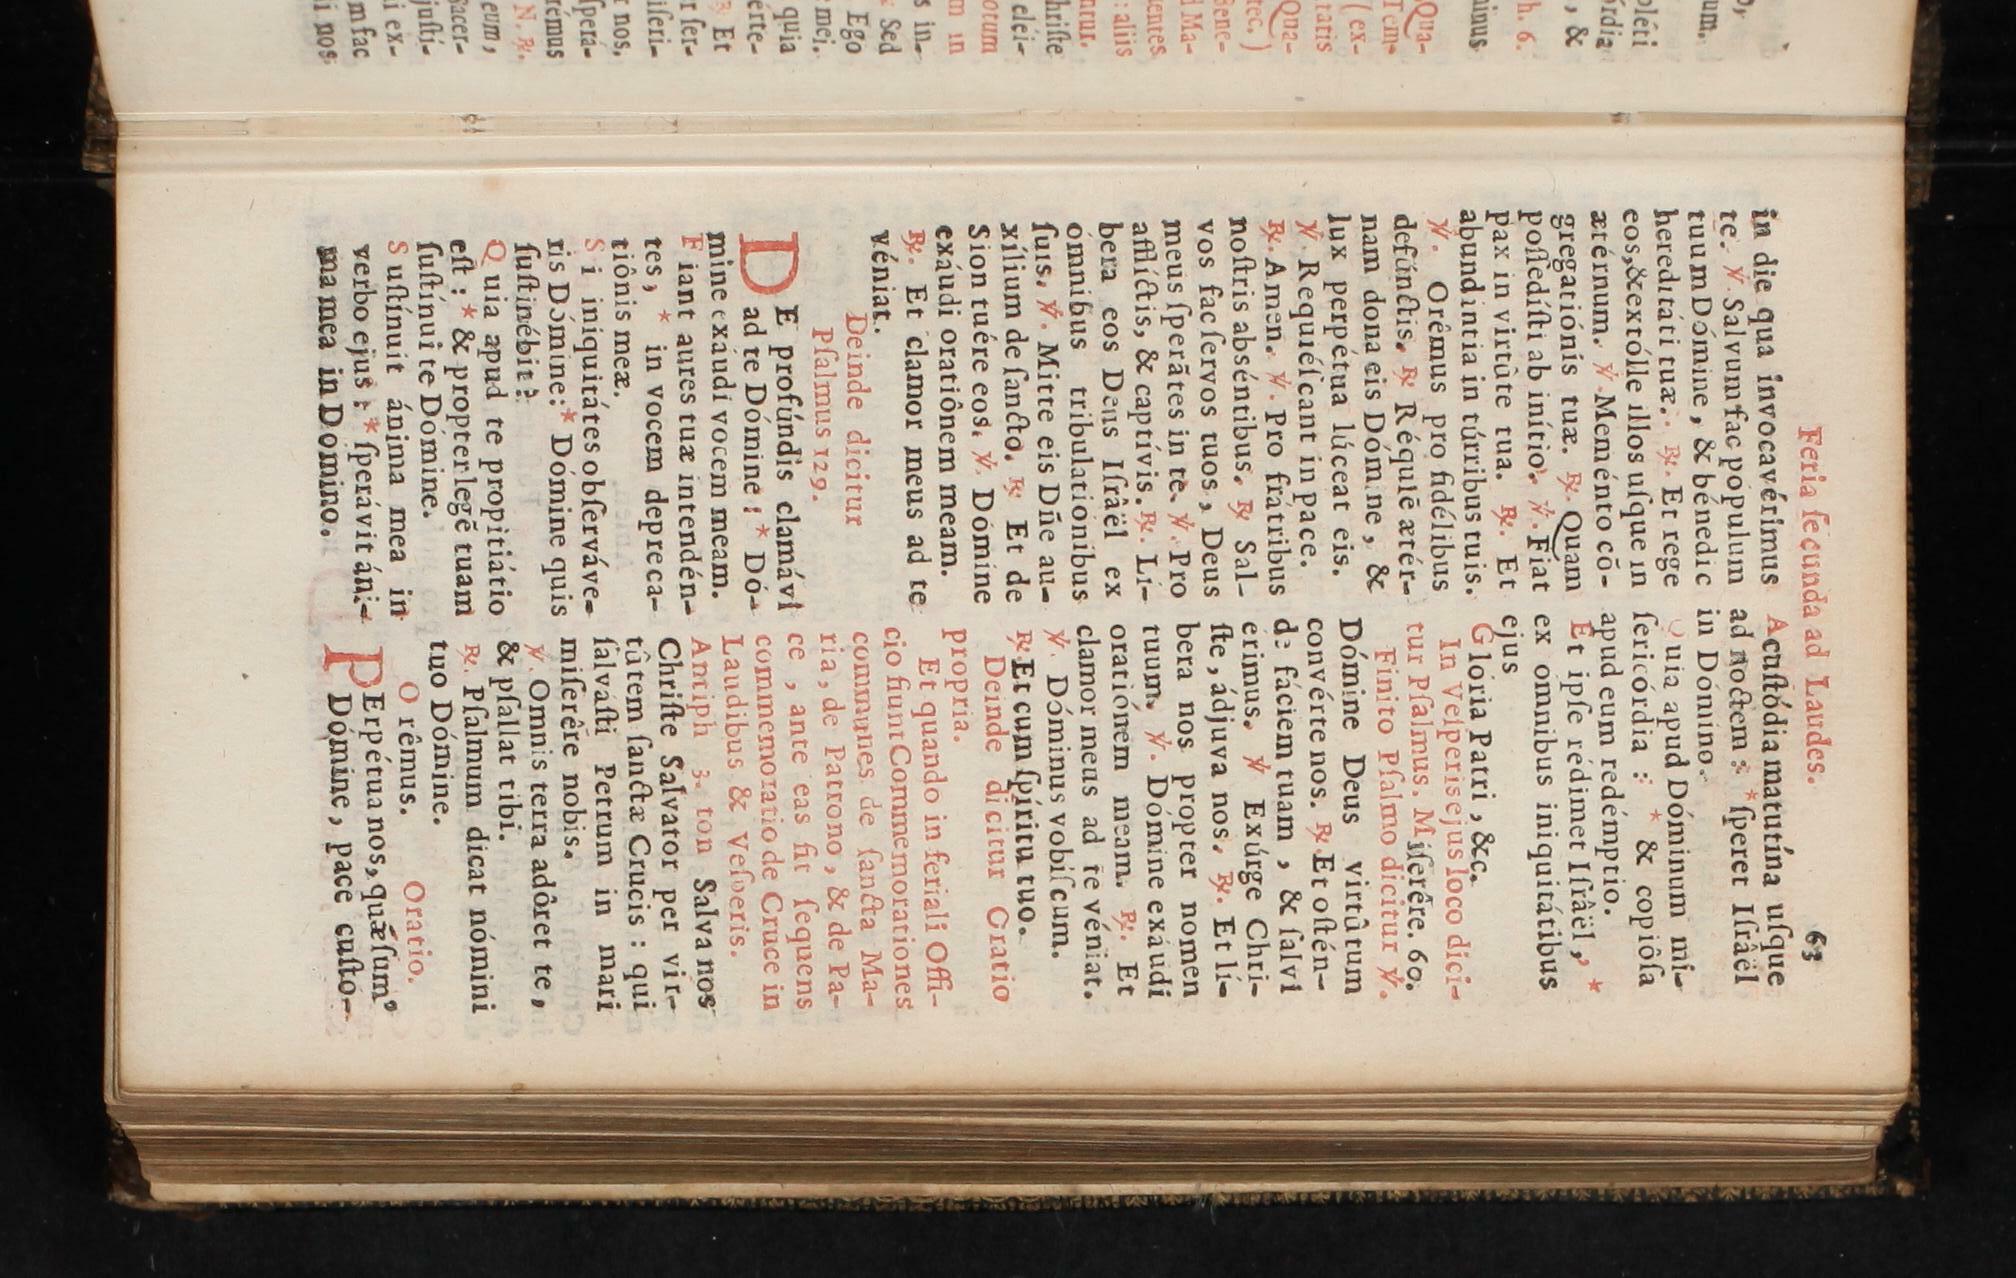 Feria ſecunda ad Laudes. 63
in die qua invocavérimus
te. ℣. Salvum fac pópulum
tuum Dómine, & bénedic
hereditáti tuæ. ℟. Et rege
eos, & extólle illos uſque in
ætérnum. ℣. Meménto cō-
gregatiónis tuæ. ℟. Quam
poſſedíſti ab inítio. ℣. Fiat
pax in virtûte tua. ℟. Et
abundintia in túrribus tuis.
℣. Orêmus pro fidélibus
defúnctis. ℟ Réquiē ætér-
nam dona eis Dómne, &
lux perpétua lúceat eis.
℣. Requiéſcant in pace.
℟. Amen. ℣. Pro frátribus
noſtris abséntibus. ℟ Sal-
vos fac ſervos tuos, Deus
meus ſperãtes in te. ℣. Pro
aflíctis, & captívis. ℟. Lí-
bera eos Deus Iſrâël ex
ómnibus tribulationibus
ſuis. ℣. Mitte eis Dñe au-
xílium de ſancto. ℟ Et de
Sion tuére eos. ℣. Dómine
exáudi oratiônem meam.
℟. Et clamor meus ad te
véniat.
Deinde dicitur
Pſalmus 129.
DE profúndis clamávi
ad te Dómine : * Dó-
mine exáudi vocem meam.
Fiant aures tuæ intendén-
tes, * in vocem depreca-
tiônis meæ.
Si iniquitátes obſerváve-
ris Dómine: * Dómine quis
ſuſtinébit?
Quia apud te propitiátio
eſt : * & propter legẽ tuam
ſuſtínui te Dómine.
Suſtínuit ánima mea in
verbo ejus : * ſperávit áni-
ma mea in Domino.
A cuſtódia matutína uſque
ad noctem : * ſperet Iſrâël
in Dómino.
Quia apud Dóminum mi-
ſericórdia : * & copiôſa
apud eum redémptio.
Et ipſe rédimet Iſrâël, *
ex omnibus iniquitátibus
ejus
Glória Patri, &c.
In Veſperis ejus loco dici-
tur Pſalmus. Miſerêre. 60.
Finito Pſalmo dicitur ℣.
Dómine Deus virtûtum
convérte nos. ℟. Et oſtén-
de fáciem tuam, & ſalvi
érimus. ℣ Exúrge Chri-
ſte, ádjuva nos. ℟. Et lí-
bera nos propter nomen
tuum. ℣. Dómine exáudi
oratiónem meam. ℟. Et
clamor meus ad te véniat.
℣. Dóminus vobiſcum.
℟ Et cum ſpíritu tuo.
Deinde dicitur Oratio
propria.
Et quando in feriali Offi-
cio fiunt Commemorationes
communes de ſancta Ma-
ria, de Patrono, & de Pa-
ce, ante eas fit ſequens
commemoratio de Cruce in
Laudibus & Veſperis.
Antiph 3. ton Salva nos
Chriſte Salvator per vir-
tûtem ſanctæ Crucis : qui
ſalváſti Petrum in mari
miſerêre nobis.
℣. Omnis terra adôret te,
& pſallat tibi.
℟. Pſalmum dicat nómini
tuo Dómine.
Orêmus. Oratio.
PErpétua nos, quǽſum⁹
Dómine, pace cuſto-